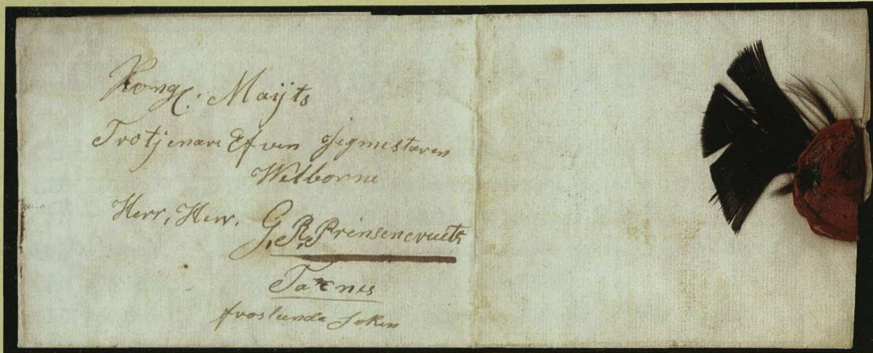 Kongl: Maijts
Trotjenare Ofver Jegmestaren
Welborne
Herr, Herr, G. R. Prinsencreutz
Taxnes
froslunda Soken